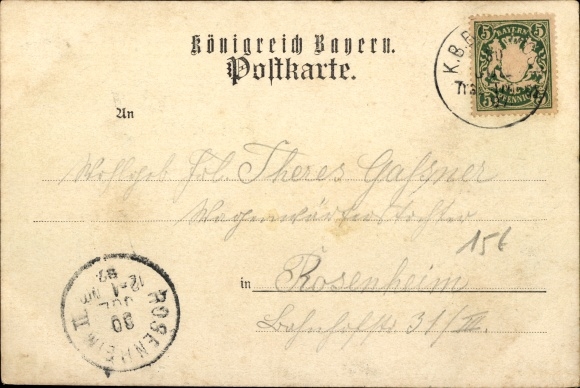 Königreich Bayern.
Postkarte.
K.B.
5 BAYERN 5
5 PFENNIG 5
An
Wohlgeb. Frl. Theres Gassner
Wagenwärterstochter
in Rosenheim
Bahnhofstr. 31/III.
15€
ROSENHEIM II.
30
JUL
12-1